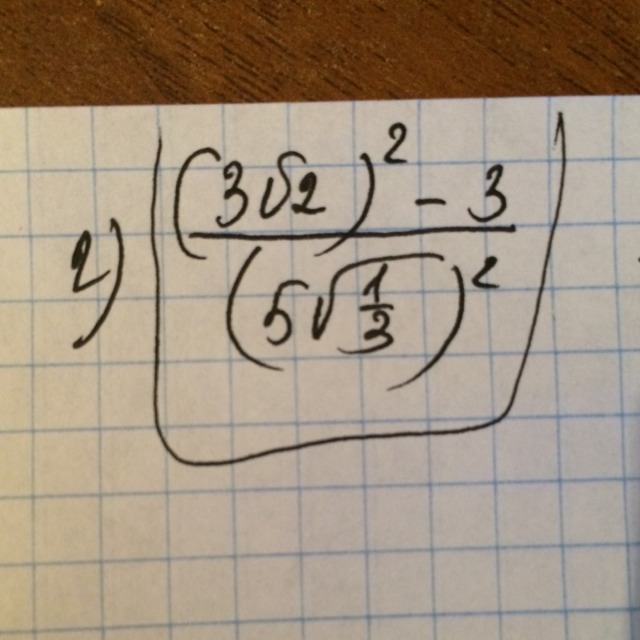 2) (3√2)² - 3
(5√1/3)²